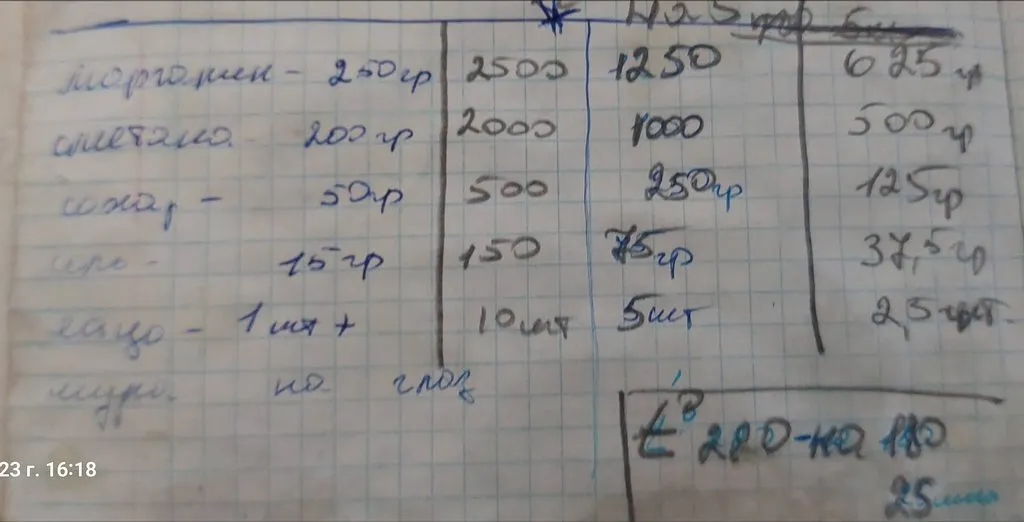 на 5
моргарин - 250гр 2500 1250 625гр
сметана 200гр 2000 1000 500гр
сахар - 50гр 500 250гр 125гр
15гр 150 75гр 37,5гр
яйцо - 1шт + 10шт 5шт 2,5шт.
на глаз
t° 220-на 180
25мин
23 г. 16:18